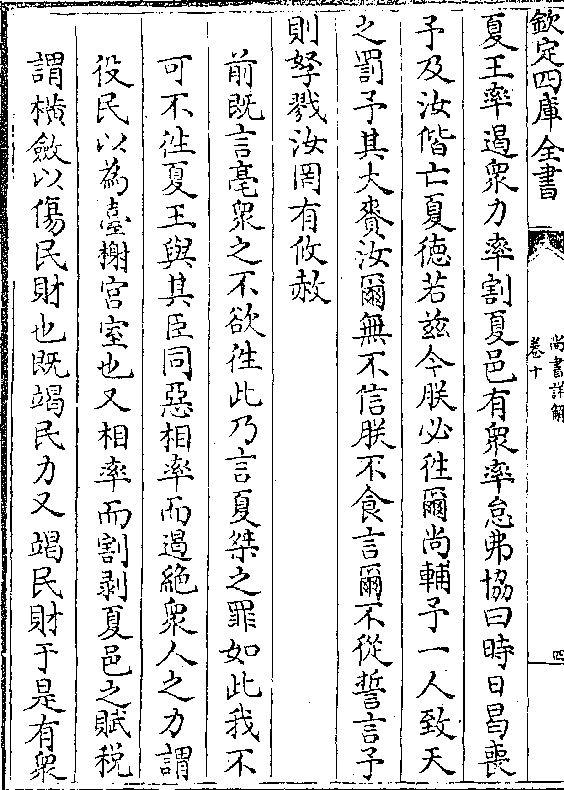 欽定四庫全書
尚書詳解
卷十
四
夏王率遏衆力率割夏邑有衆率怠弗協曰時日曷喪
予及汝偕亡夏德若兹今朕必徃爾尚輔予一人致天
之罰予其大賚汝爾無不信朕不食言爾不從誓言予
則孥戮汝罔有攸赦
前既言亳衆之不欲徃此乃言夏桀之罪如此我不
可不徃夏王與其臣同惡相率而遏絶衆人之力謂
役民以為臺榭宫室也又相率而割剥夏邑之賦税
謂横斂以傷民財也既竭民力又竭民財于是有衆